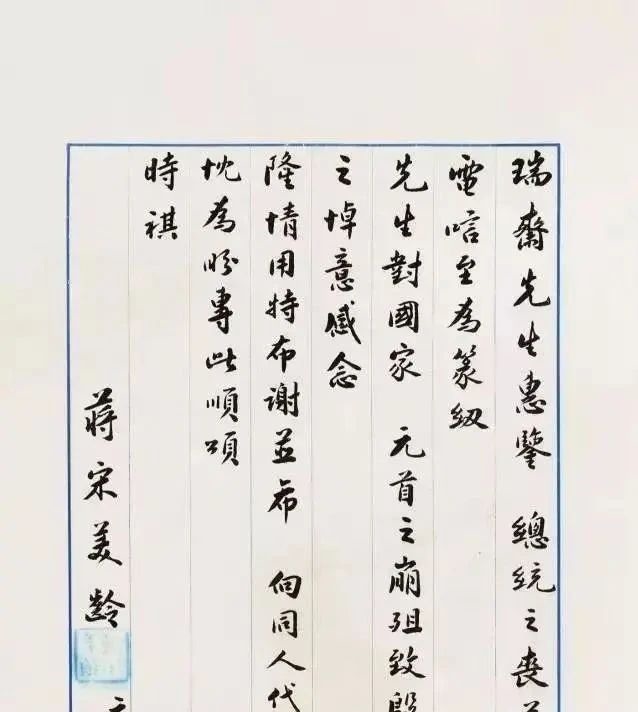 瑞齋先生惠鑒 總統之喪
電唁至為篆紉
先生對國家 元首之崩殂致殷
之悼意感念
隆情用特布謝並希 向同人代
忱為盼專此順頌
時祺
蔣宋美齡